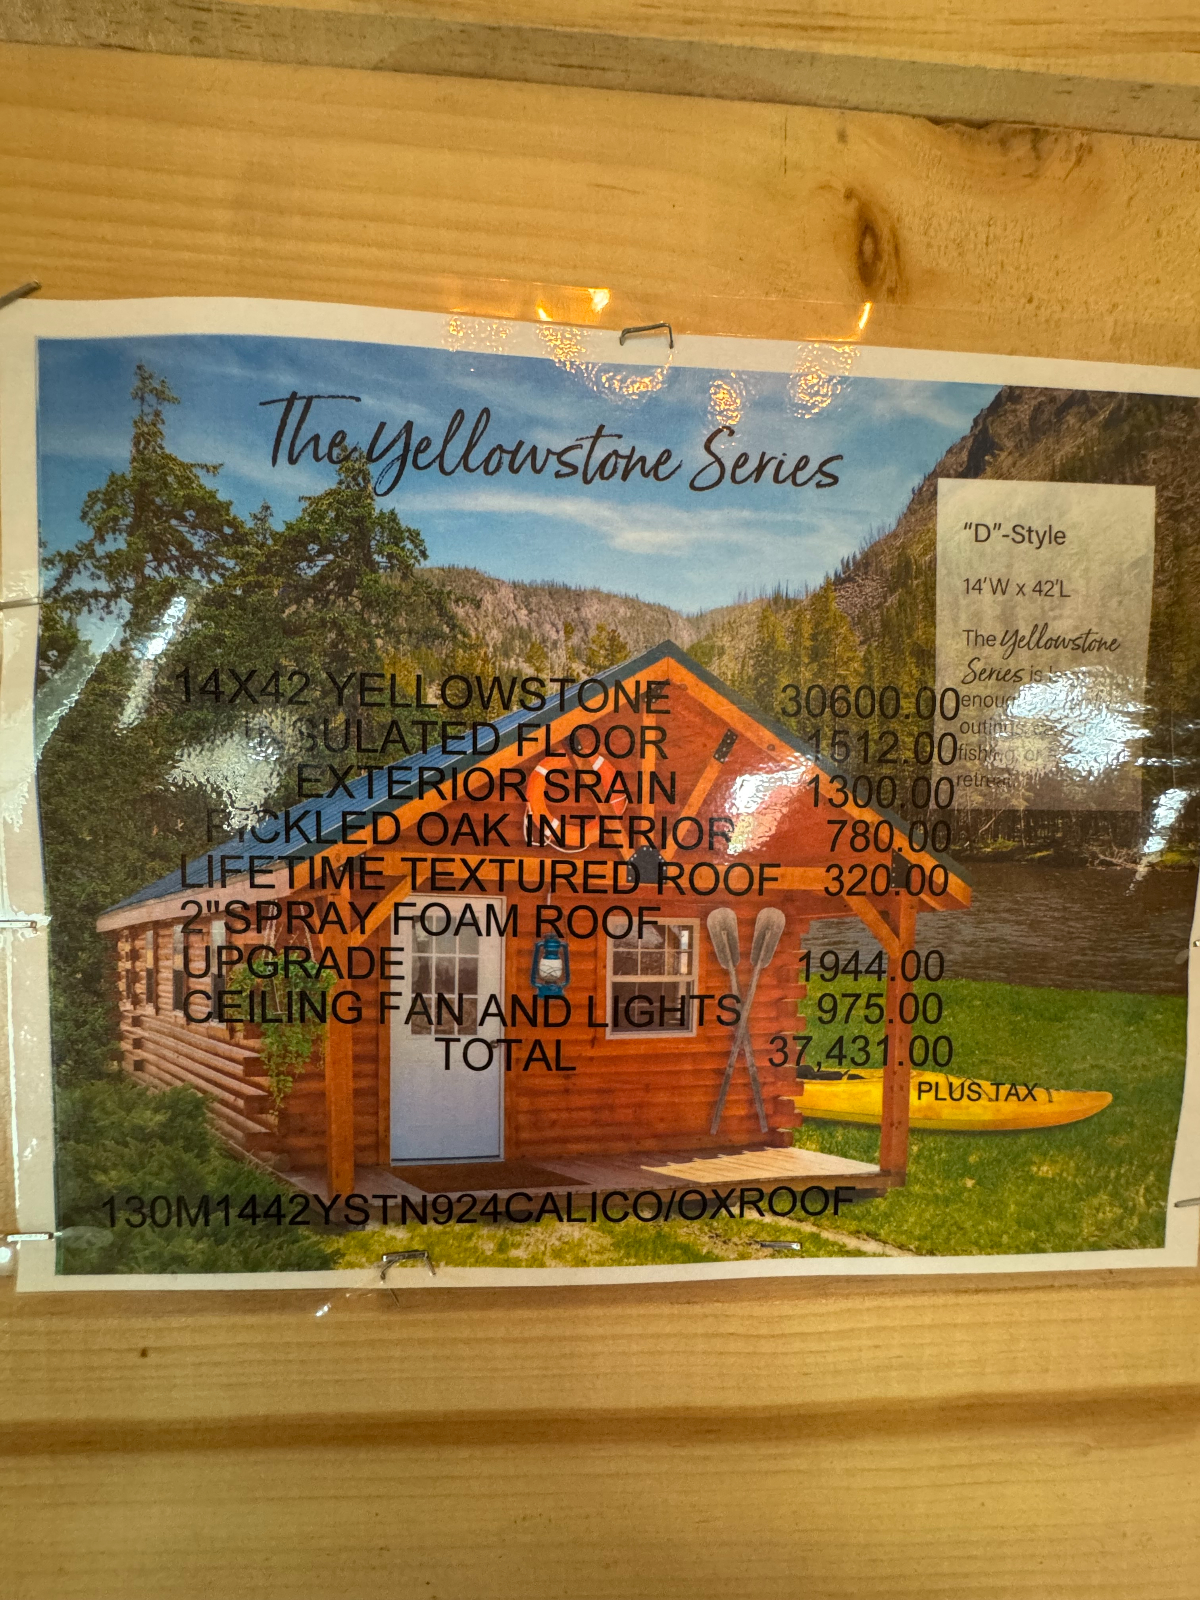 The Yellowstone Series
"D"-Style
14'W x 42'L
The Yellowstone
Series is
enough
outings,
fishing, or
retreat.
14X42 YELLOWSTONE 30600.00
INSULATED FLOOR 1512.00
EXTERIOR SRAIN 1300.00
PICKLED OAK INTERIOR 780.00
LIFETIME TEXTURED ROOF 320.00
2"SPRAY FOAM ROOF
UPGRADE 1944.00
CEILING FAN AND LIGHTS 975.00
TOTAL 37,431.00
PLUS TAX
130M1442YSTN924CALICO/OXROOF